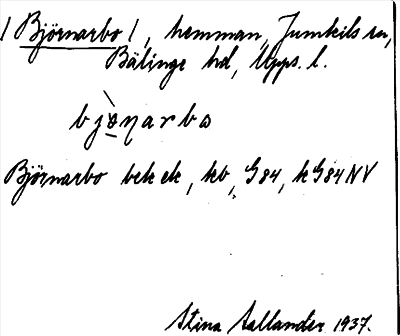 / Björnarbo /, hemman, Jumkils sn,
Bälinge hd, Upps. l.
bjo̱ṇarbo
Björnarbo bek ek, kb, G84, k G84 NV
Stina Sallander 1937.